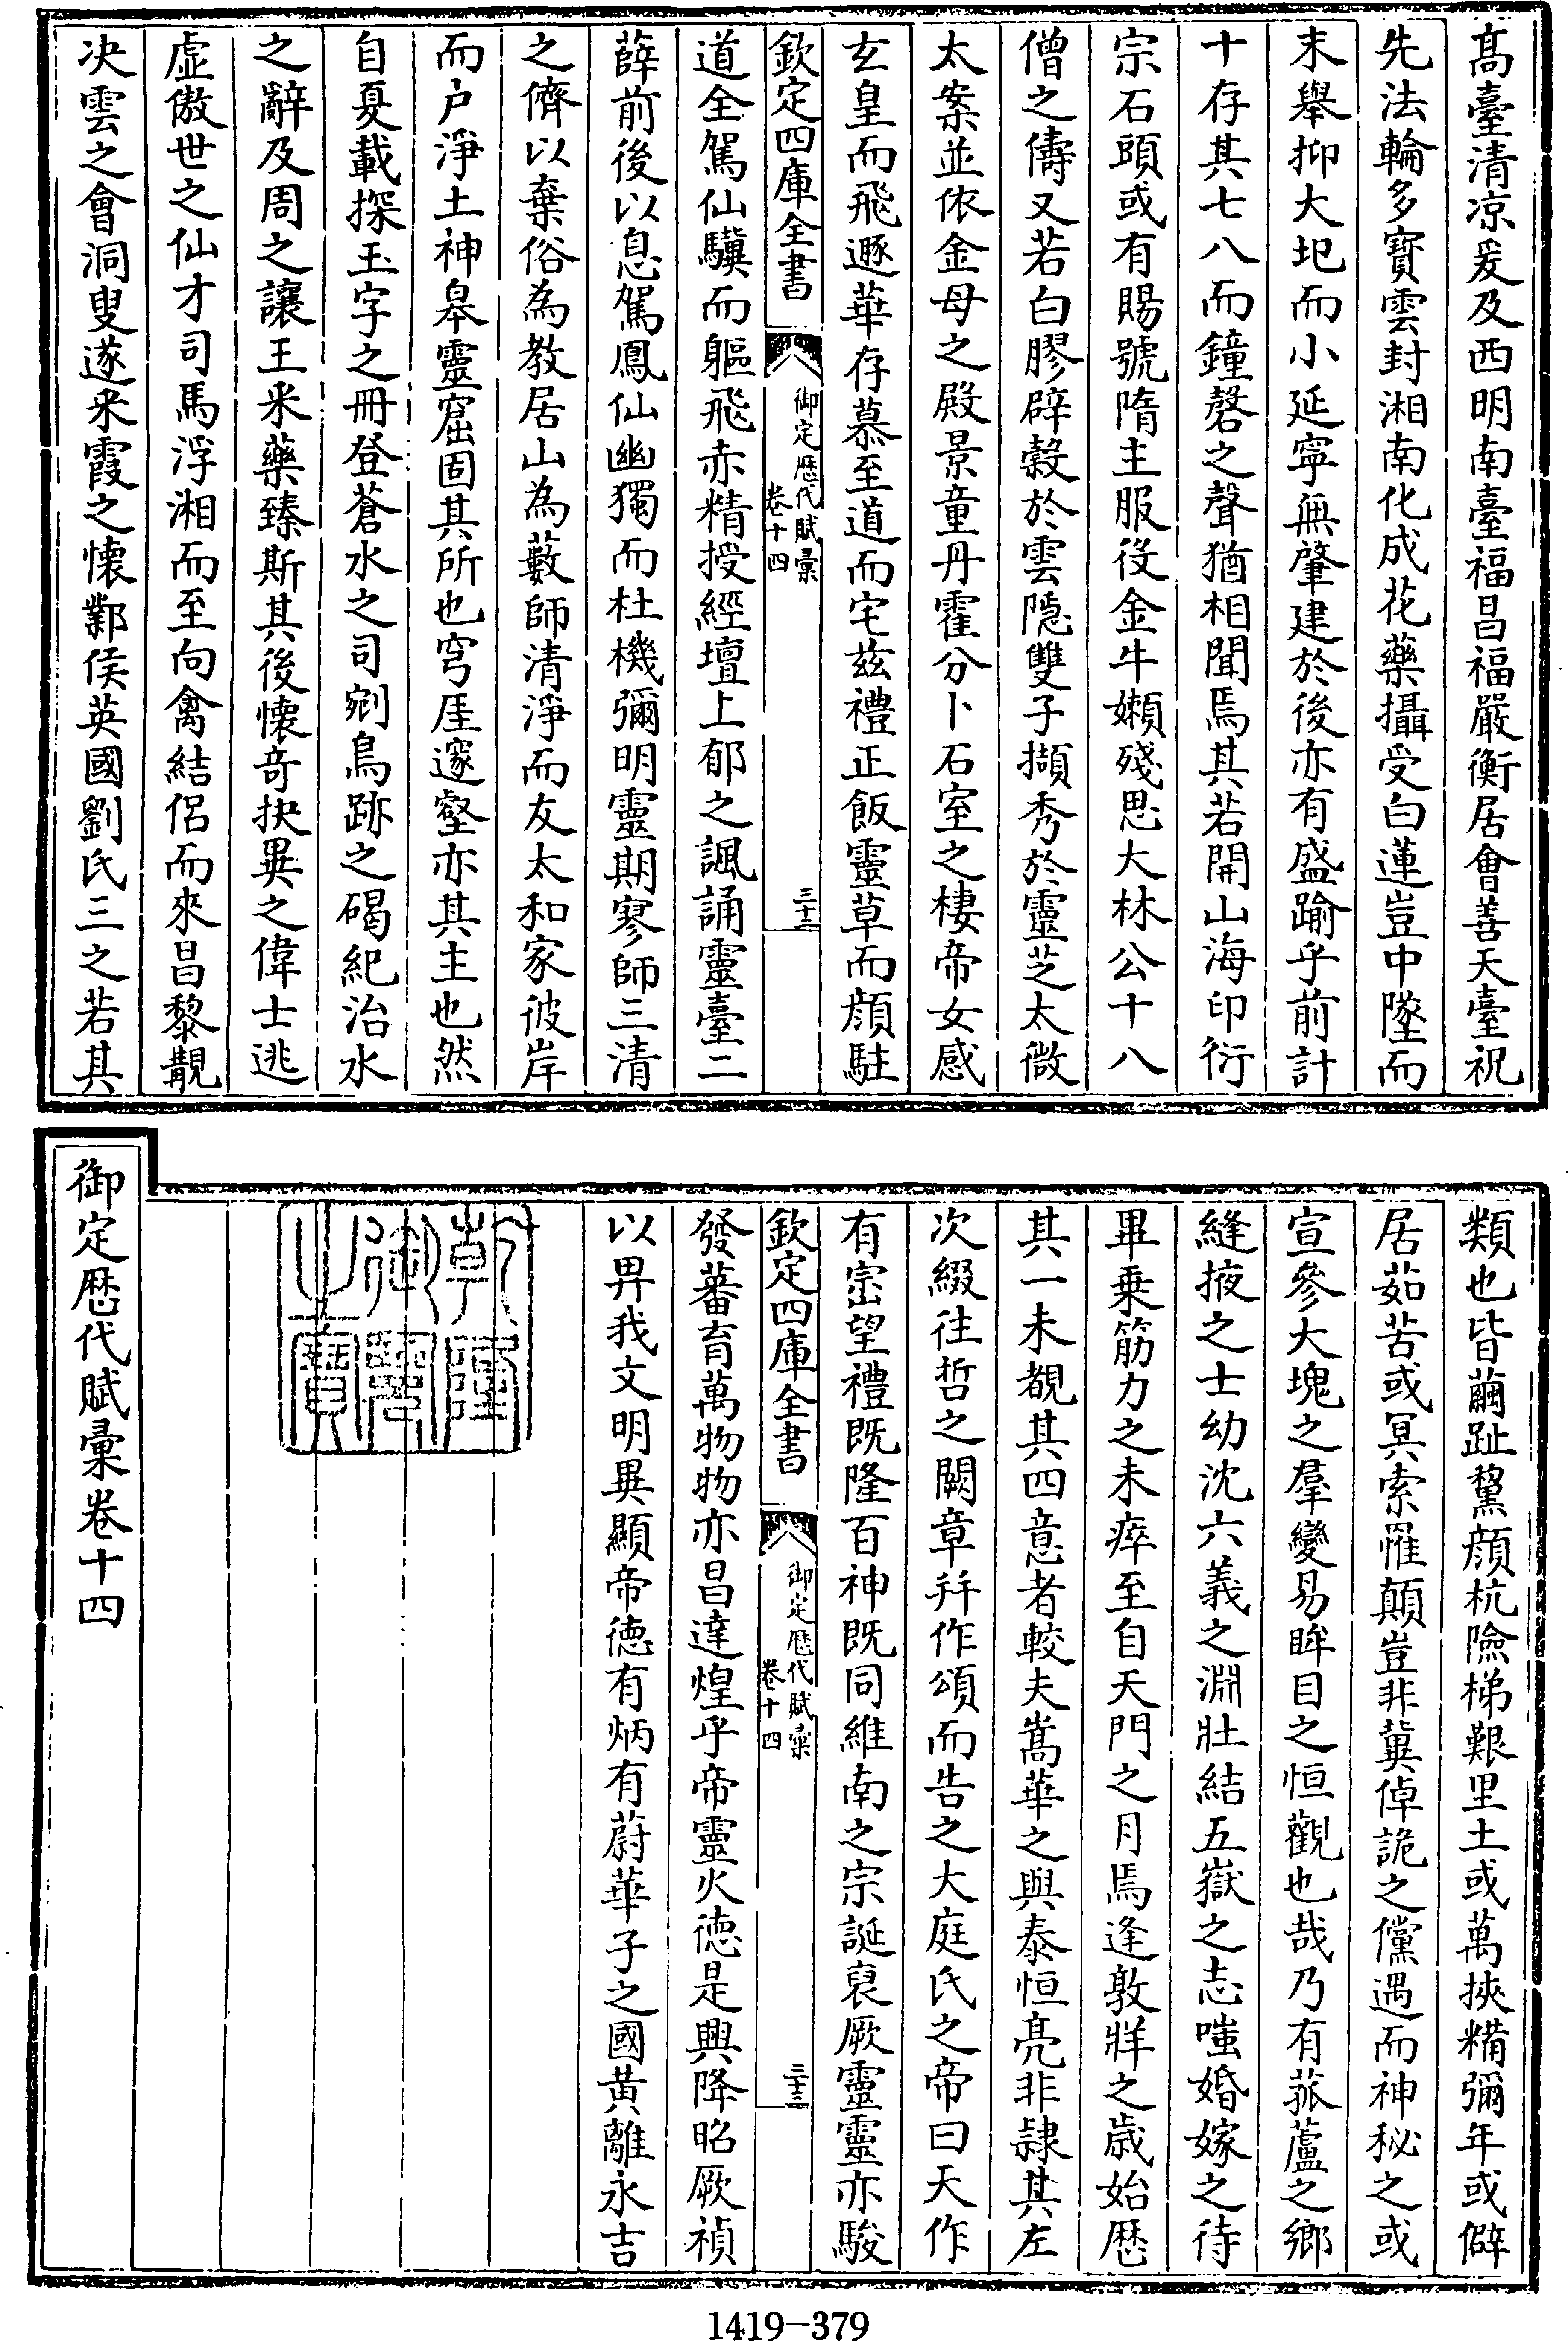 髙臺清凉爰及西明南臺福昌福嚴衡居會善天臺祝
先法輪多寳雲封湘南化成花藥攝受白蓮豈中墜而
末舉抑大圯而小延寧無肇建於後亦有盛踰乎前計
十存其七八而鐘磬之聲猶相聞焉其若開山海印衍
宗石頭或有賜號隋主服役金牛嬾殘思大林公十八
僧之儔又若白膠辟榖於雲隠雙子擷秀於靈芝太微
太案並依金母之殿景童丹霍分卜石室之棲帝女感
玄皇而飛遯華存慕至道而宅兹禮正飯靈草而顔駐
欽定四庫全書
御定厯代賦彚
卷十四
三十二
道全駕仙驥而軀飛赤精授經壇上郁之諷誦靈臺二
薛前後以息駕鳳仙幽獨而杜機彌明靈期寥師三清
之儕以棄俗為教居山為藪師清淨而友太和家彼岸
而户淨土神臯靈窟固其所也穹厓邃壑亦其主也然
自夏載探玉字之冊登蒼水之司剜鳥跡之碣紀治水
之辭及周之讓王采藥臻斯其後懷竒抉異之偉士逃
虚傲世之仙才司馬浮湘而至向禽結侣而來昌黎覯
决雲之會洞叟遂釆霞之懷鄴侯英國劉氏三之若其
類也皆繭趾黧顔杭險梯艱里土或萬挾糒彌年或僻
居茹苦或冥索罹顛豈非冀倬詭之儻遇而神秘之或
宣參大塊之羣變易眸目之恒觀也哉乃有菰蘆之鄉
縫掖之士幼沈六義之淵壯結五嶽之志嗤婚嫁之待
畢乗筋力之未瘁至自天門之月焉逢敦牂之歳始厯
其一未覩其四意者較夫嵩華之與泰恒亮非隷其左
次綴徃哲之闕章幷作頌而告之大庭氏之帝曰天作
有宻望禮既隆百神既同維南之宗誕裒厥靈靈亦駿
欽定四庫全書
御定厯代賦彚
卷十四
三十三
發蕃育萬物物亦昌達煌乎帝靈火徳是興降昭厥禎
以畀我文明異顯帝徳有炳有蔚華子之國黄離永吉
乾隆御覽之寶
御定厯代賦彚卷十四
1419-379